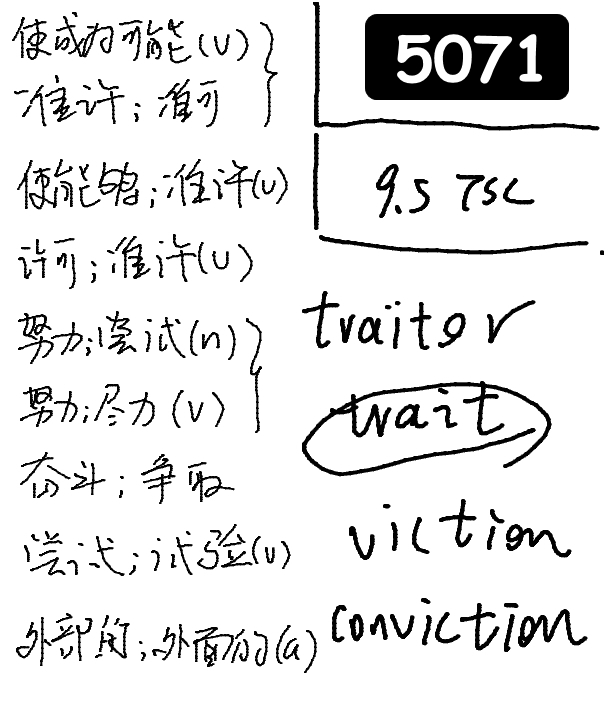 使成为可能(v)
准许；准可
使能够；准许(v)
许可；准许(v)
努力；尝试(n)
努力；尽力(v)
奋斗；争取
尝试；试验(v)
外部的；外面的(a)
5071
9.5 TSC
traitor
trait
viction
conviction